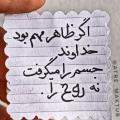 اگر ظاهر مهم بود
خداوند
جسم را میگرفت
نه روح را.